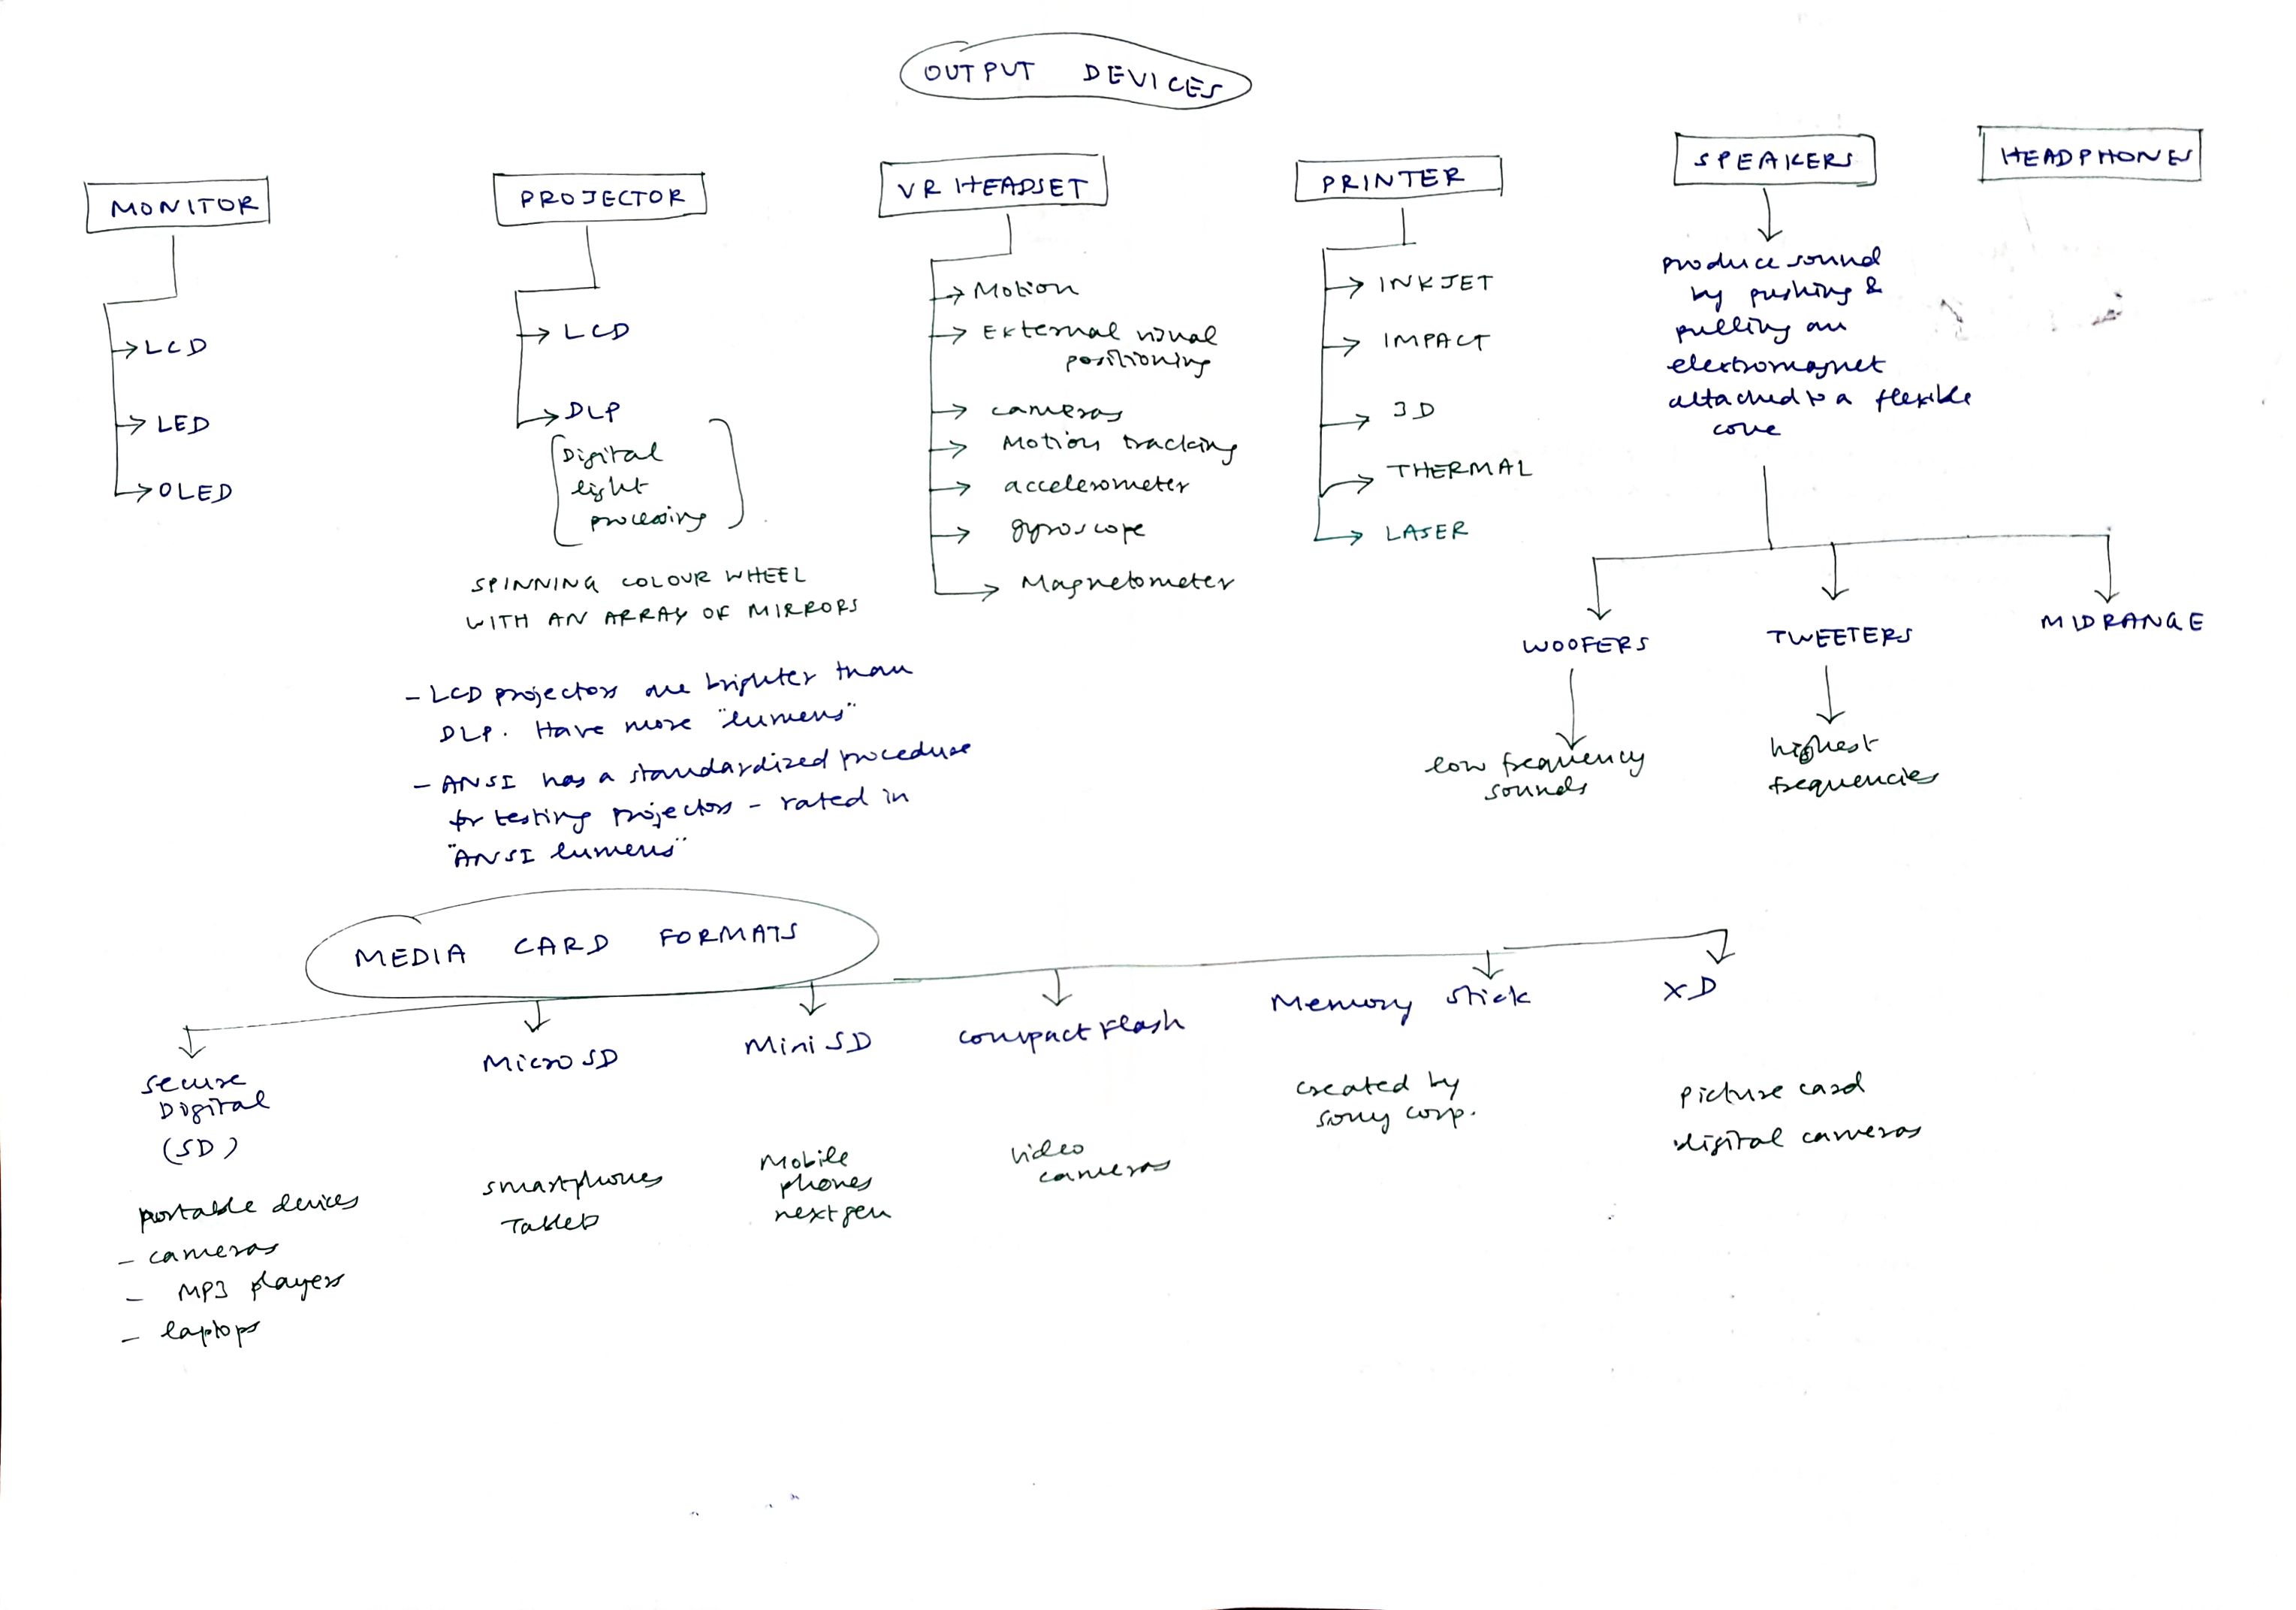 OUTPUT DEVICES
MONITOR
LCD
LED
OLED
PROJECTOR
LCD
DLP
Digital
light
processing
SPINNING COLOUR WHEEL
WITH AN ARRAY OF MIRRORS
- LCD projectors are brighter than
DLP. Have more "lumens"
- ANSI has a standardized procedure
for testing projectors - rated in
"ANSI lumens"
VR HEADSET
Motion
External visual
positioning
cameras
Motion tracking
accelerometer
gyroscope
Magnetometer
PRINTER
INKJET
IMPACT
3D
THERMAL
LASER
SPEAKERS
produce sound
by pushing &
pulling an
electromagnet
attached to a flexible
cone
WOOFERS
low frequency
sounds
TWEETERS
highest
frequencies
MIDRANGE
HEADPHONES
MEDIA CARD FORMATS
Secure
Digital
(SD)
portable devices
- cameras
- MP3 players
- laptops
Micro SD
smartphones
Tablets
Mini SD
Mobile
phones
next gen
compact Flash
video
cameras
Memory stick
created by
sony corp.
XD
picture card
digital cameras